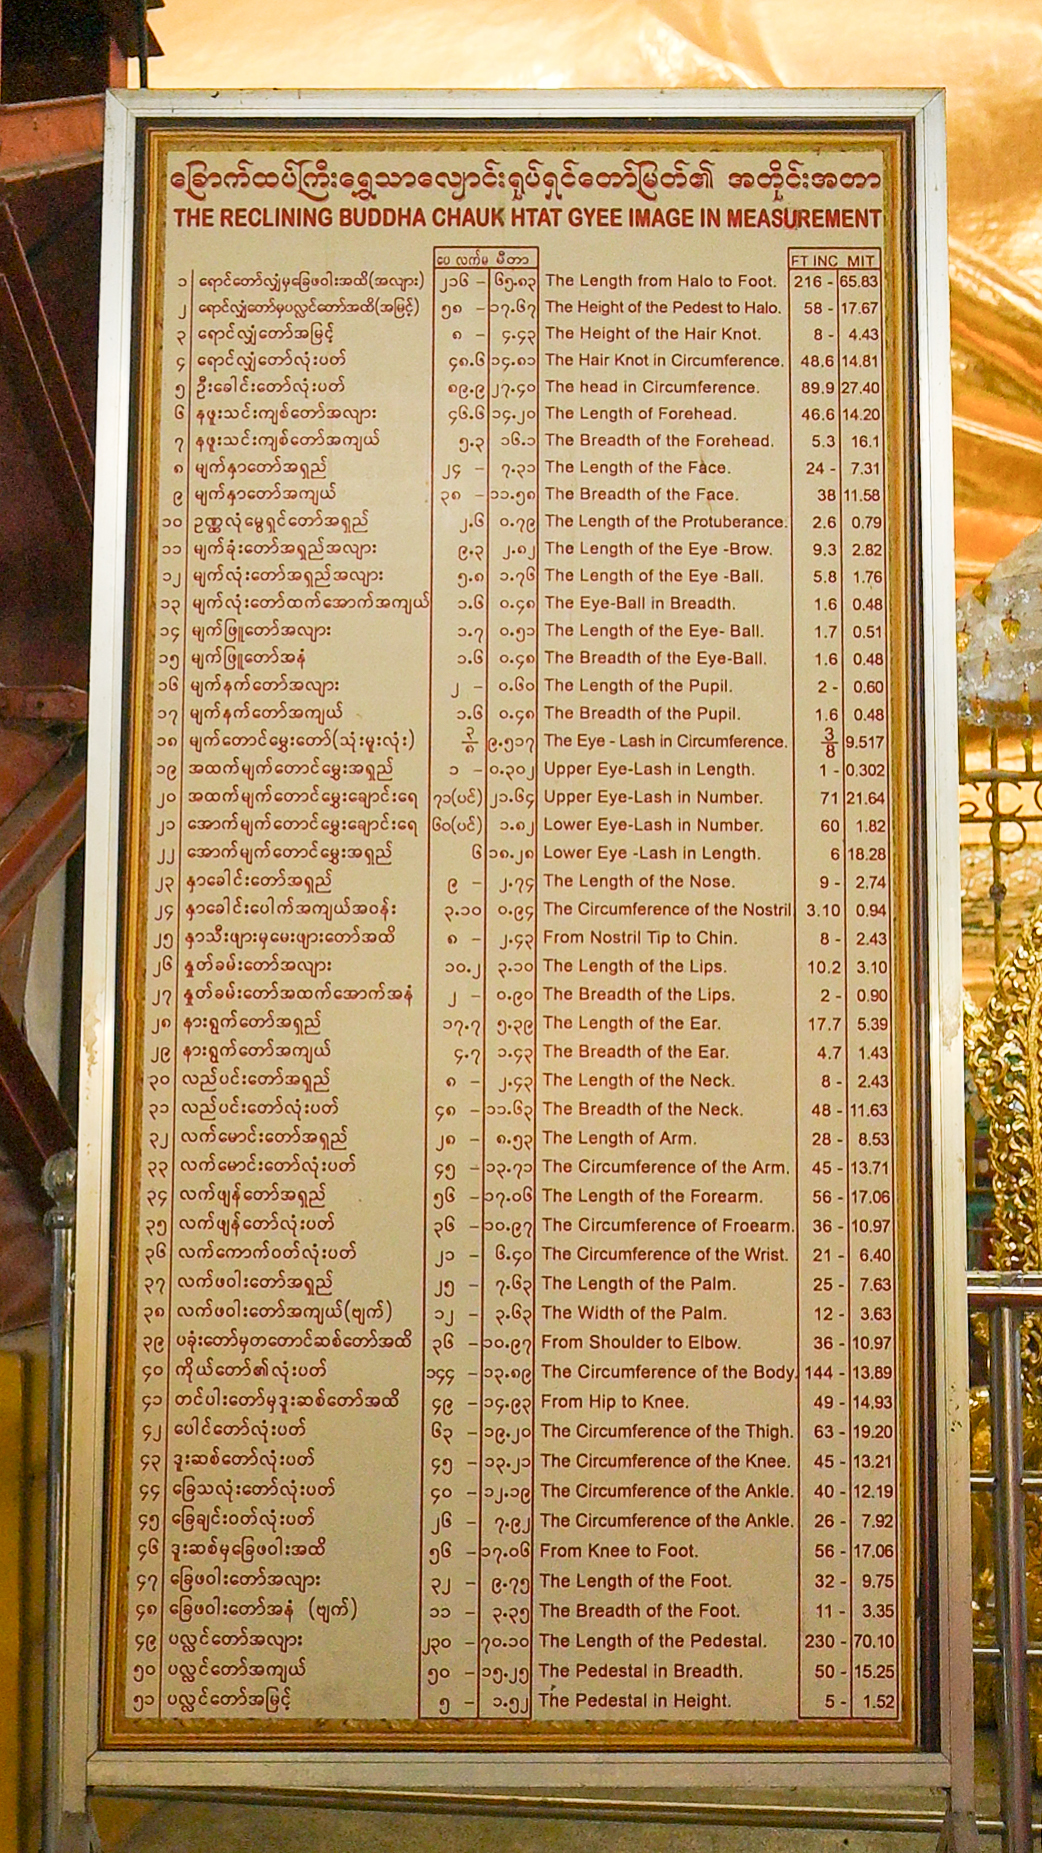 ခြောက်ထပ်ကြီးရွှေသာလျောင်းရုပ်ရှင်တော်မြတ်၏ အတိုင်းအတာ
THE RECLINING BUDDHA CHAUK HTAT GYEE IMAGE IN MEASUREMENT
ပေ လက်မ မီတာ FT INC MIT
၁ ရောင်တော်လျှံမှခြေဖဝါးအထိ(အလျား) ၂၁၆ - ၆၅.၈၃ The Length from Halo to Foot. 216 - 65.83
၂ ရောင်လျှံတော်မှပလ္လင်တော်အထိ(အမြင့်) ၅၈ - ၁၇.၆၇ The Height of the Pedest to Halo. 58 - 17.67
၃ ရောင်လျှံတော်အမြင့် ၈ - ၄.၄၃ The Height of the Hair Knot. 8 - 4.43
၄ ရောင်လျှံတော်လုံးပတ် ၄၈.၆ ၁၄.၈၁ The Hair Knot in Circumference. 48.6 14.81
၅ ဦးခေါင်းတော်လုံးပတ် ၈၉.၉ ၂၇.၄၀ The head in Circumference. 89.9 27.40
၆ နဖူးသင်းကျစ်တော်အလျား ၄၆.၆ ၁၄.၂၀ The Length of Forehead. 46.6 14.20
၇ နဖူးသင်းကျစ်တော်အကျယ် ၅.၃ ၁၆.၁ The Breadth of the Forehead. 5.3 16.1
၈ မျက်နှာတော်အရှည် ၂၄ - ၇.၃၁ The Length of the Face. 24 - 7.31
၉ မျက်နှာတော်အကျယ် ၃၈ - ၁၁.၅၈ The Breadth of the Face. 38 11.58
၁၀ ဥဏ္ဏလုံမွေရှင်တော်အရှည် ၂.၆ ၀.၇၉ The Length of the Protuberance. 2.6 0.79
၁၁ မျက်ခုံးတော်အရှည်အလျား ၉.၃ ၂.၈၂ The Length of the Eye -Brow. 9.3 2.82
၁၂ မျက်လုံးတော်အရှည်အလျား ၅.၈ ၁.၇၆ The Length of the Eye -Ball. 5.8 1.76
၁၃ မျက်လုံးတော်ထက်အောက်အကျယ် ၁.၆ ၀.၄၈ The Eye-Ball in Breadth. 1.6 0.48
၁၄ မျက်ဖြူတော်အလျား ၁.၇ ၀.၅၁ The Length of the Eye- Ball. 1.7 0.51
၁၅ မျက်ဖြူတော်အနံ ၁.၆ ၀.၄၈ The Breadth of the Eye-Ball. 1.6 0.48
၁၆ မျက်နက်တော်အလျား ၂ - ၀.၆၀ The Length of the Pupil. 2 - 0.60
၁၇ မျက်နက်တော်အကျယ် ၁.၆ ၀.၄၈ The Breadth of the Pupil. 1.6 0.48
၁၈ မျက်တောင်မွှေးတော်(သုံးမူးလုံး) ၃/၈ ၉.၅၁၇ The Eye - Lash in Circumference. 3/8 9.517
၁၉ အထက်မျက်တောင်မွှေးအရှည် ၁ - ၀.၃၀၂ Upper Eye-Lash in Length. 1 - 0.302
၂၀ အထက်မျက်တောင်မွှေးချောင်းရေ ၇၁(ပင်) ၂၁.၆၄ Upper Eye-Lash in Number. 71 21.64
၂၁ အောက်မျက်တောင်မွှေးချောင်းရေ ၆၀(ပင်) ၁.၈၂ Lower Eye-Lash in Number. 60 1.82
၂၂ အောက်မျက်တောင်မွှေးအရှည် ၆ ၁၈.၂၈ Lower Eye -Lash in Length. 6 18.28
၂၃ နှာခေါင်းတော်အရှည် ၉ - ၂.၇၄ The Length of the Nose. 9 - 2.74
၂၄ နှာခေါင်းပေါက်အကျယ်အဝန်း ၃.၁၀ ၀.၉၄ The Circumference of the Nostril 3.10 0.94
၂၅ နှာသီးဖျားမှမေးဖျားတော်အထိ ၈ - ၂.၄၃ From Nostril Tip to Chin. 8 - 2.43
၂၆ နှုတ်ခမ်းတော်အလျား ၁၀.၂ ၃.၁၀ The Length of the Lips. 10.2 3.10
၂၇ နှုတ်ခမ်းတော်အထက်အောက်အနံ ၂ - ၀.၉၀ The Breadth of the Lips. 2 - 0.90
၂၈ နားရွက်တော်အရှည် ၁၇.၇ ၅.၃၉ The Length of the Ear. 17.7 5.39
၂၉ နားရွက်တော်အကျယ် ၄.၇ ၁.၄၃ The Breadth of the Ear. 4.7 1.43
၃၀ လည်ပင်းတော်အရှည် ၈ - ၂.၄၃ The Length of the Neck. 8 - 2.43
၃၁ လည်ပင်းတော်လုံးပတ် ၄၈ - ၁၁.၆၃ The Breadth of the Neck. 48 - 11.63
၃၂ လက်မောင်းတော်အရှည် ၂၈ - ၈.၅၃ The Length of Arm. 28 - 8.53
၃၃ လက်မောင်းတော်လုံးပတ် ၄၅ - ၁၃.၇၁ The Circumference of the Arm. 45 - 13.71
၃၄ လက်ဖျန်တော်အရှည် ၅၆ - ၁၇.၀၆ The Length of the Forearm. 56 - 17.06
၃၅ လက်ဖျန်တော်လုံးပတ် ၃၆ - ၁၀.၉၇ The Circumference of Froearm. 36 - 10.97
၃၆ လက်ကောက်ဝတ်လုံးပတ် ၂၁ - ၆.၄၀ The Circumference of the Wrist. 21 - 6.40
၃၇ လက်ဖဝါးတော်အရှည် ၂၅ - ၇.၆၃ The Length of the Palm. 25 - 7.63
၃၈ လက်ဖဝါးတော်အကျယ်(ဗျက်) ၁၂ - ၃.၆၃ The Width of the Palm. 12 - 3.63
၃၉ ပခုံးတော်မှတတောင်ဆစ်တော်အထိ ၃၆ - ၁၀.၉၇ From Shoulder to Elbow. 36 - 10.97
၄၀ ကိုယ်တော်၏လုံးပတ် ၁၄၄ - ၁၃.၈၉ The Circumference of the Body. 144 - 13.89
၄၁ တင်ပါးတော်မှဒူးဆစ်တော်အထိ ၄၉ - ၁၄.၉၃ From Hip to Knee. 49 - 14.93
၄၂ ပေါင်တော်လုံးပတ် ၆၃ - ၁၉.၂၀ The Circumference of the Thigh. 63 - 19.20
၄၃ ဒူးဆစ်တော်လုံးပတ် ၄၅ - ၁၃.၂၁ The Circumference of the Knee. 45 - 13.21
၄၄ ခြေသလုံးတော်လုံးပတ် ၄၀ - ၁၂.၁၉ The Circumference of the Ankle. 40 - 12.19
၄၅ ခြေချင်းဝတ်လုံးပတ် ၂၆ - ၇.၉၂ The Circumference of the Ankle. 26 - 7.92
၄၆ ဒူးဆစ်မှခြေဖဝါးအထိ ၅၆ - ၁၇.၀၆ From Knee to Foot. 56 - 17.06
၄၇ ခြေဖဝါးတော်အလျား ၃၂ - ၉.၇၅ The Length of the Foot. 32 - 9.75
၄၈ ခြေဖဝါးတော်အနံ (ဗျက်) ၁၁ - ၃.၃၅ The Breadth of the Foot. 11 - 3.35
၄၉ ပလ္လင်တော်အလျား ၂၃၀ - ၇၀.၁၀ The Length of the Pedestal. 230 - 70.10
၅၀ ပလ္လင်တော်အကျယ် ၅၀ - ၁၅.၂၅ The Pedestal in Breadth. 50 - 15.25
၅၁ ပလ္လင်တော်အမြင့် ၅ - ၁.၅၂ The Pedestal in Height. 5 - 1.52